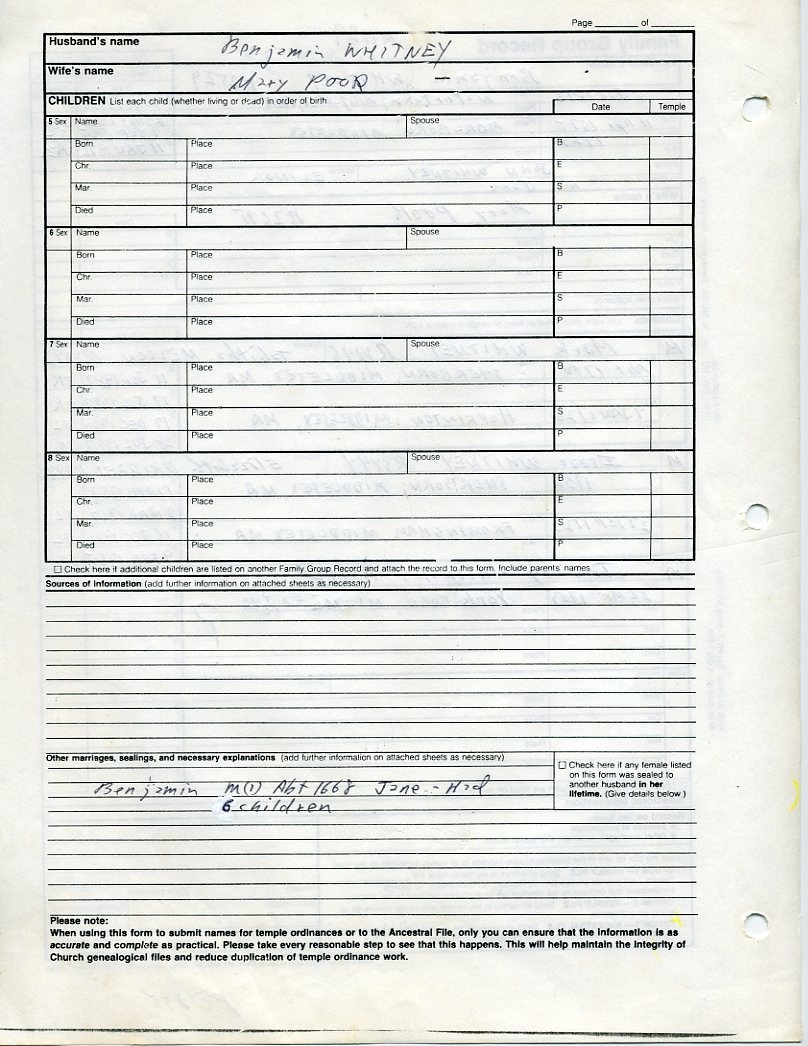 Page ______ of ______
Husband's name Benjamin WHITNEY
Wife's name Mary POOR —
CHILDREN List each child (whether living or dead) in order of birth Date Temple
5 Sex Name Spouse
Born Place B
Chr. Place E
Mar. Place S
Died Place P
6 Sex Name Spouse
Born Place B
Chr. Place E
Mar. Place S
Died Place P
7 Sex Name Spouse
Born Place B
Chr. Place E
Mar. Place S
Died Place P
8 Sex Name Spouse
Born Place B
Chr. Place E
Mar. Place S
Died Place P
☐ Check here if additional children are listed on another Family Group Record and attach the record to this form. Include parents' names.
Sources of information (add further information on attached sheets as necessary)
Other marriages, sealings, and necessary explanations (add further information on attached sheets as necessary)
☐ Check here if any female listed
on this form was sealed to
another husband in her
lifetime. (Give details below.)
Benjamin m(1) Abt 1668 Jane -- Had
6 children
Please note:
When using this form to submit names for temple ordinances or to the Ancestral File, only you can ensure that the information is as
accurate and complete as practical. Please take every reasonable step to see that this happens. This will help maintain the integrity of
Church genealogical files and reduce duplication of temple ordinance work.